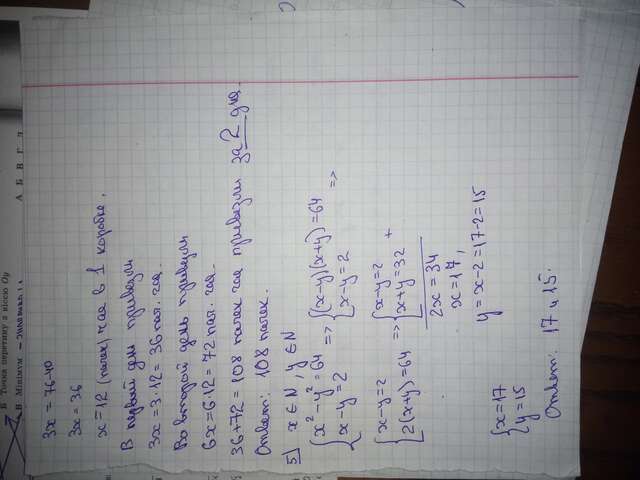 Б Точка перетину з віссю Oy
В Мінімум
А Б В Г Д
3x = 76-40
3x = 36
x = 12 (пачек) чая в 1 коробке.
В первый день привезли
3x = 3·12 = 36 пач. чая.
Во второй день привезли
6x = 6·12 = 72 пач. чая.
36+72 = 108 пачек чая привезли за 2 дня.
Ответ: 108 пачек.
5) x ∈ N, y ∈ N
{x² - y² = 64 => {(x-y)(x+y) = 64 =>
{x - y = 2 {x - y = 2
{x - y = 2 => {x - y = 2 +
{2(x+y) = 64 {x + y = 32
2x = 34
x = 17,
y = x-2 = 17-2 = 15
{x = 17
{y = 15
Ответ: 17 и 15.